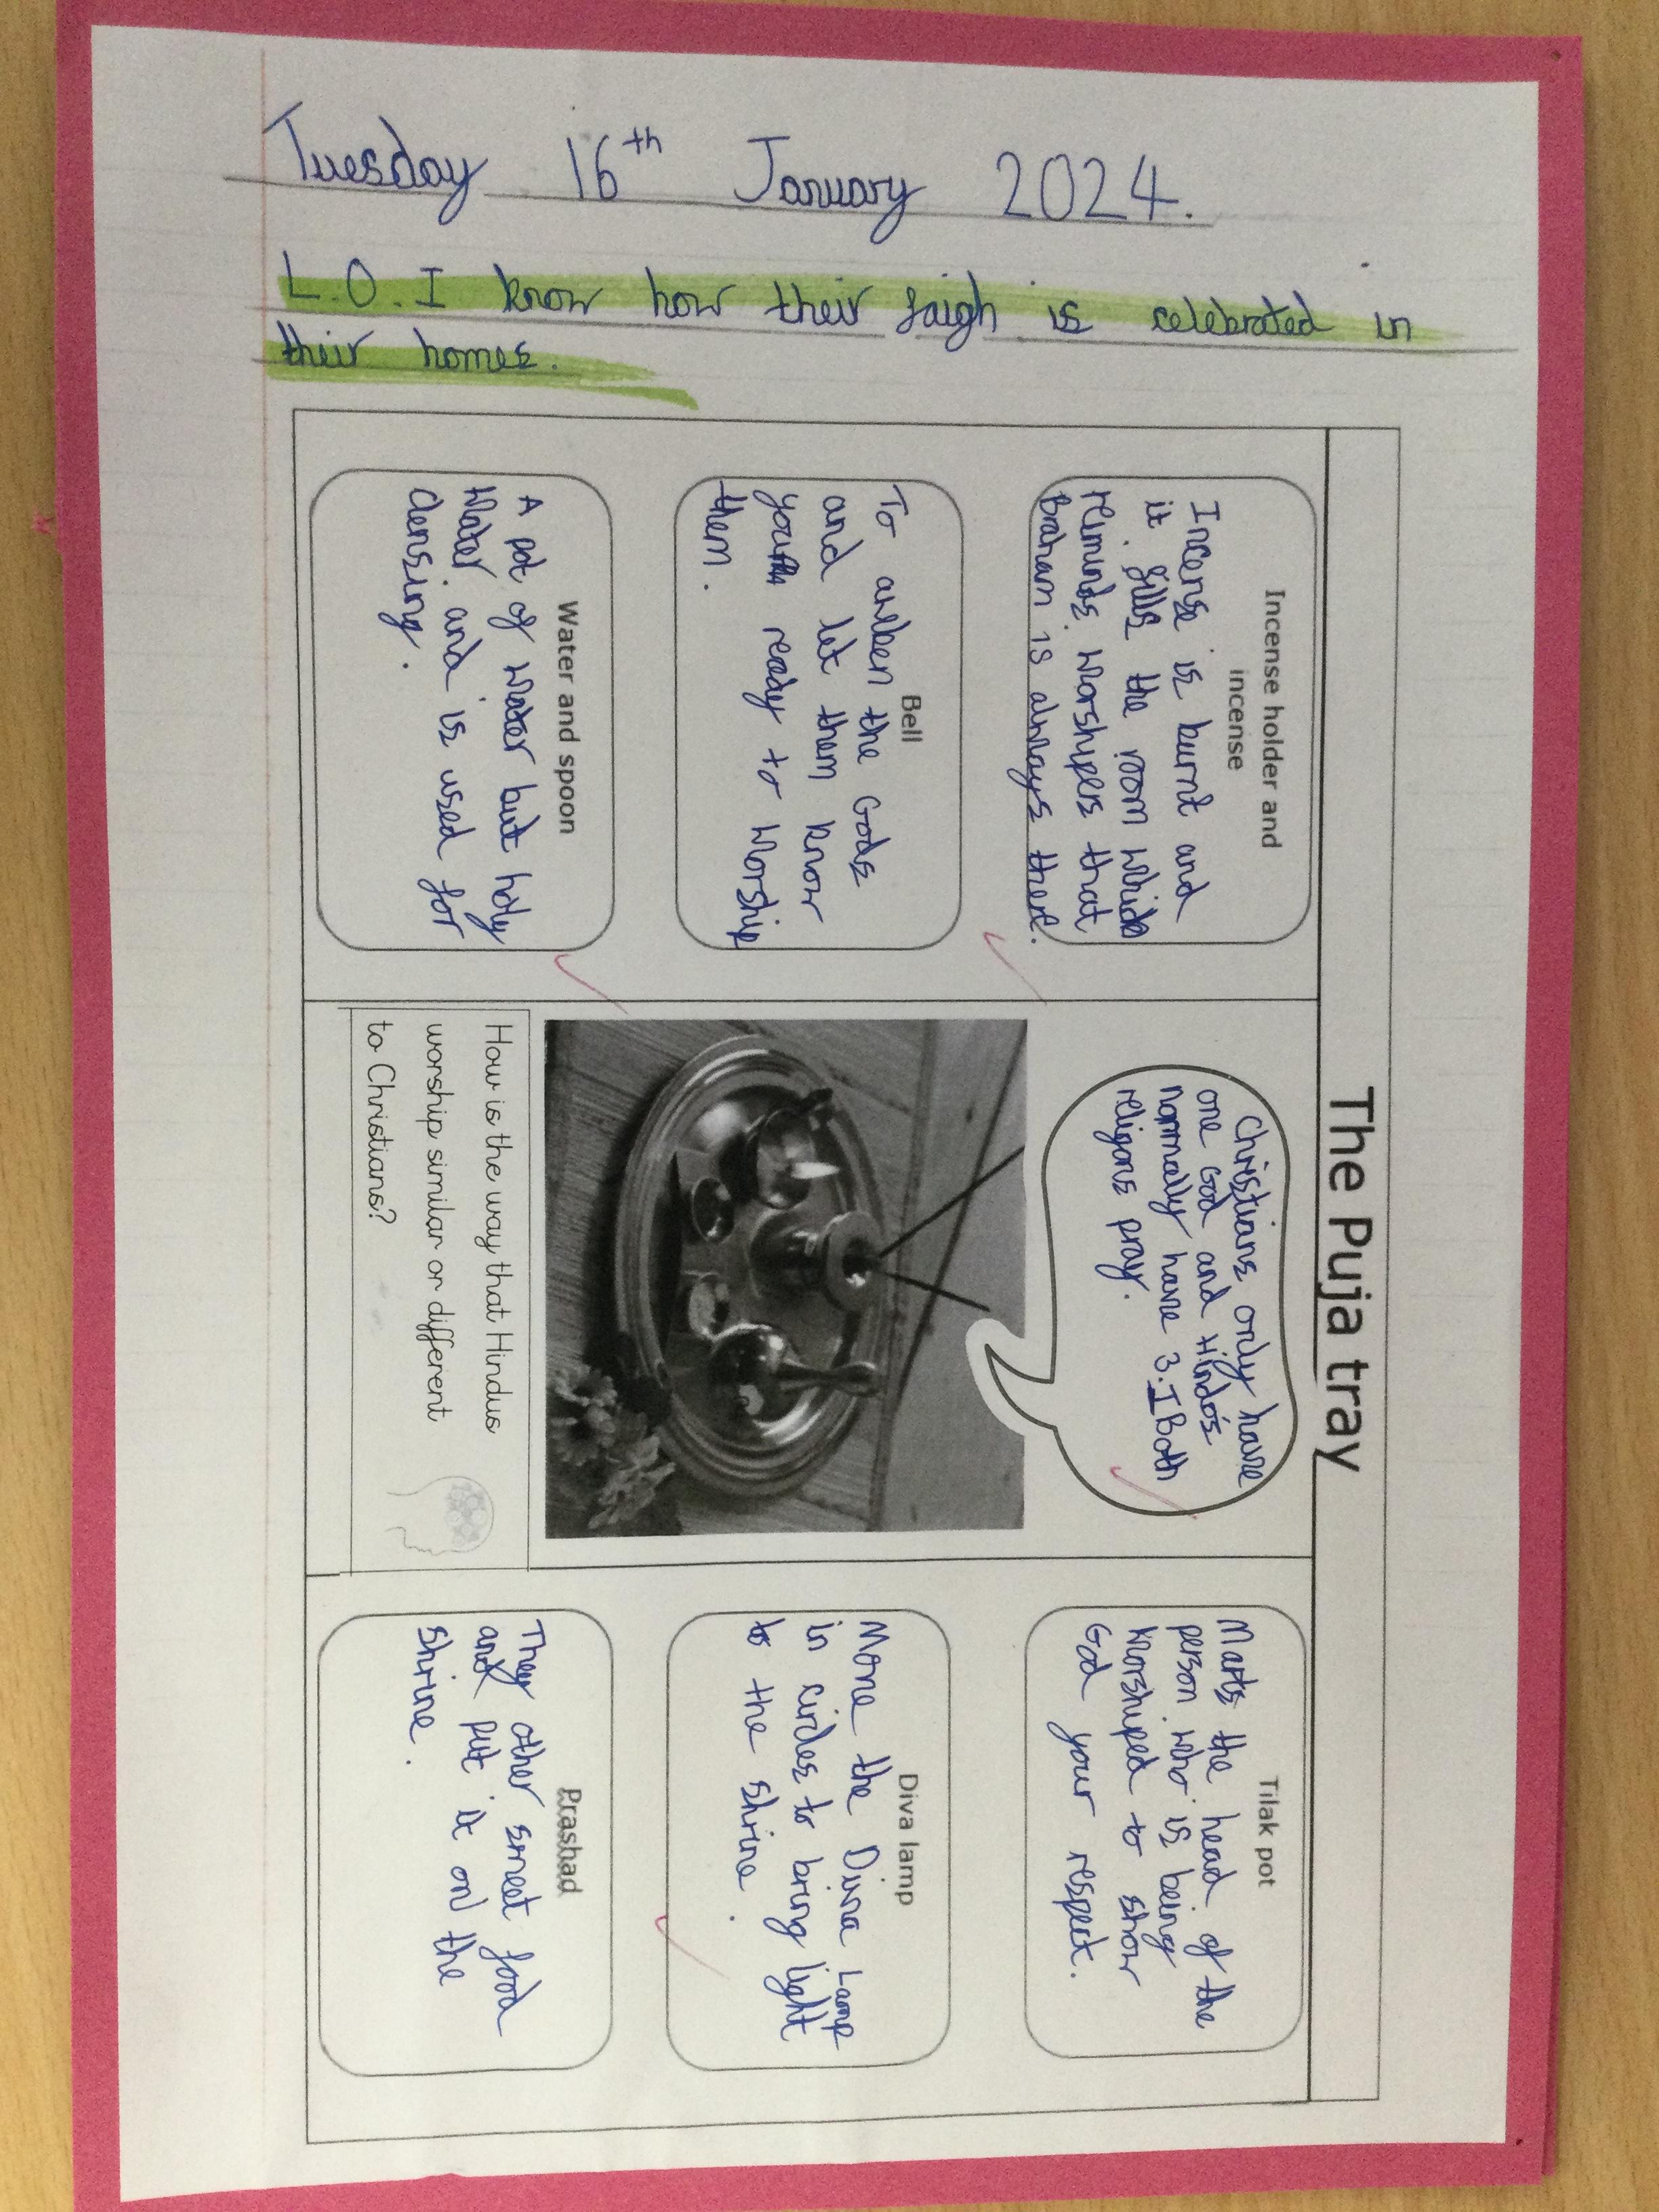 Tuesday 16th January 2024.
L.O. I know how their faigh is celebrated in
their homes.
The Puja tray
Incense holder and
incense
Incense is burnt and
it fills the room which
reminds worshipers that
Braham is always there.
Bell
To awken the Gods
and let them know
your ready to worship
them.
Water and spoon
A pot of water but holy
water and is used for
clensing.
Christians only have
one God and Hindo's
normally have 3. Both
religons pray.
How is the way that Hindus
worship similar or different
to Christians?
Tilak pot
Marks the head of the
person who is being
worshiped to show
God your respect.
Diva lamp
Move the Diva Lamp
in circles to bring light
to the shrine.
Prashad
They other sweet food
and put it on the
shrine.